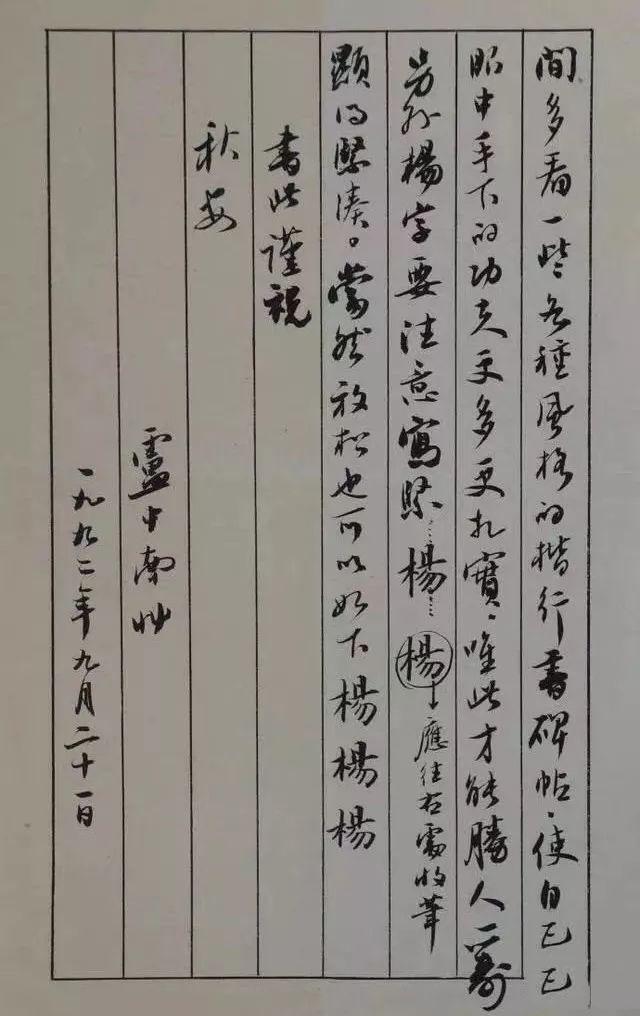 間多看一些各種風格的楷行書碑帖，使自己已
眼中手下的功夫更多更扎實，唯此才能勝人一籌
另外楊字要注意寫緊……楊……楊→應往右處收筆
顯得緊湊。當然放松也可以如下楊楊楊
書此謹祝
秋安
盧中南
一九九二年九月二十一日